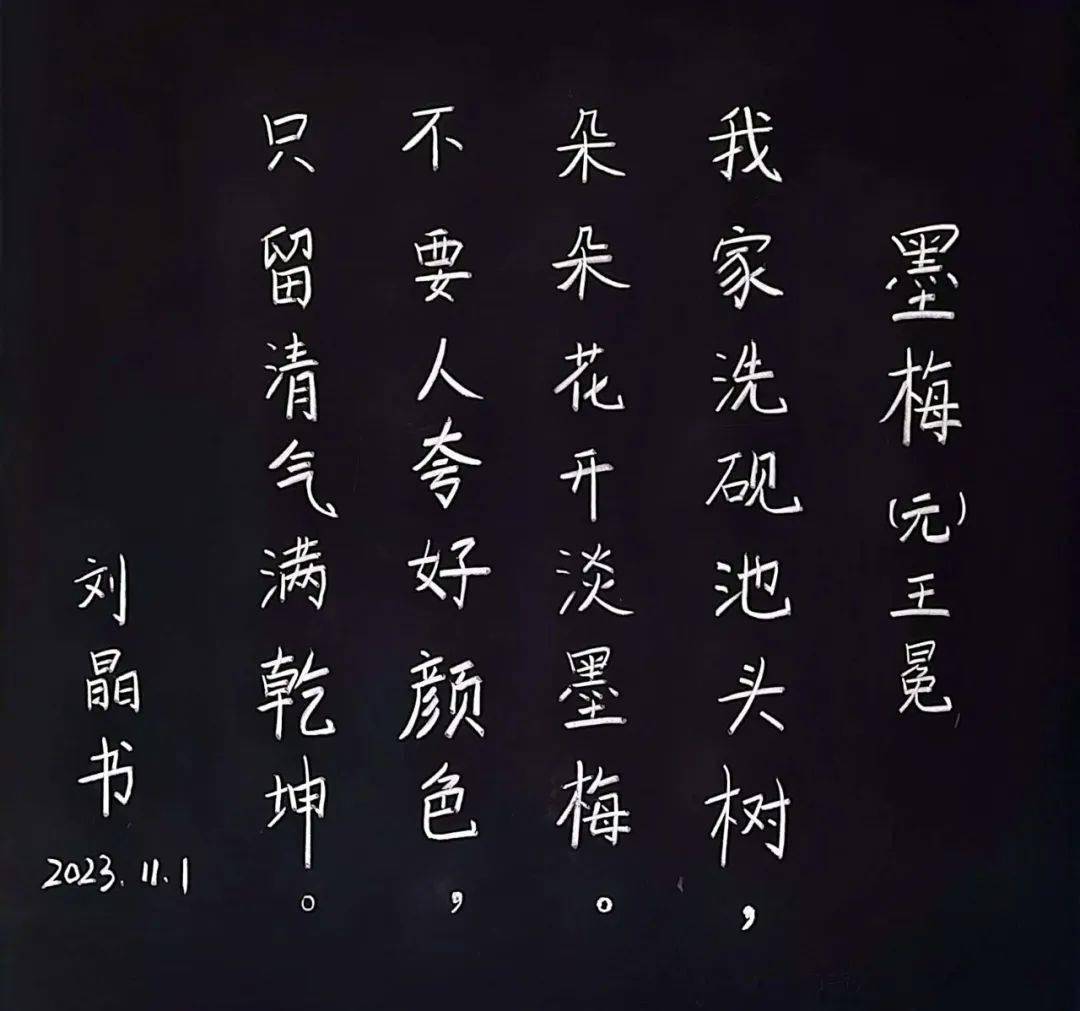 墨梅(元)王冕
我家洗砚池头树，
朵朵花开淡墨梅。
不要人夸好颜色，
只留清气满乾坤。
刘晶书
2023.11.1